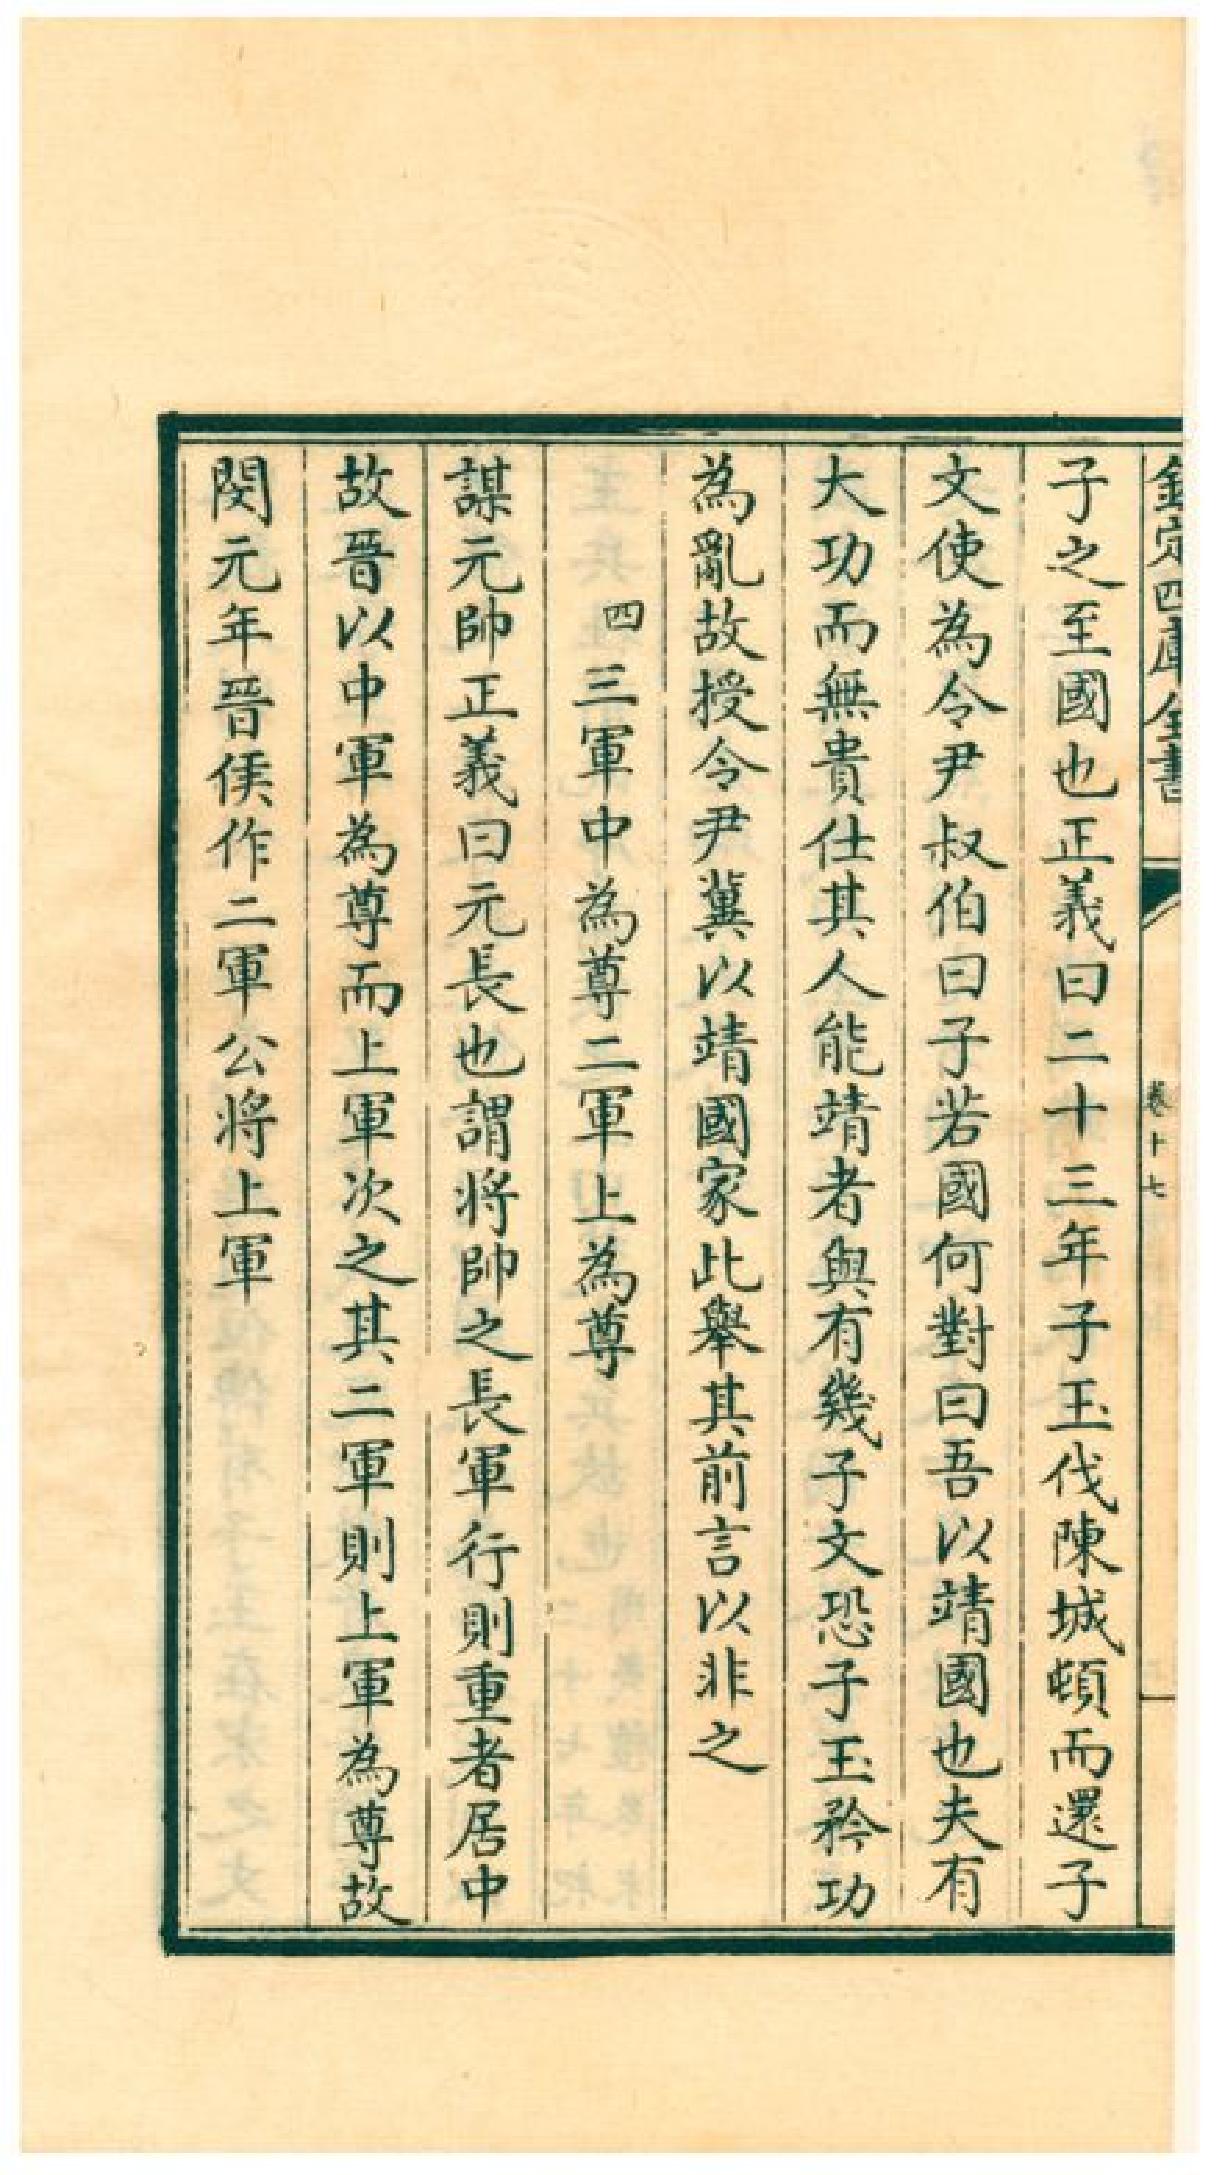 欽定四庫全書
卷十七
子之至國也正義曰二十三年子玉伐陳城頓而還子
文使為令尹叔伯曰子若國何對曰吾以靖國也夫有
大功而無貴仕其人能靖者與有幾子文恐子玉矜功
為亂故授令尹冀以靖國家此舉其前言以非之
四三軍中為尊二軍上為尊
謀元帥正義曰元長也謂將帥之長軍行則重者居中
故晉以中軍為尊而上軍次之其二軍則上軍為尊故
閔元年晉侯作二軍公將上軍